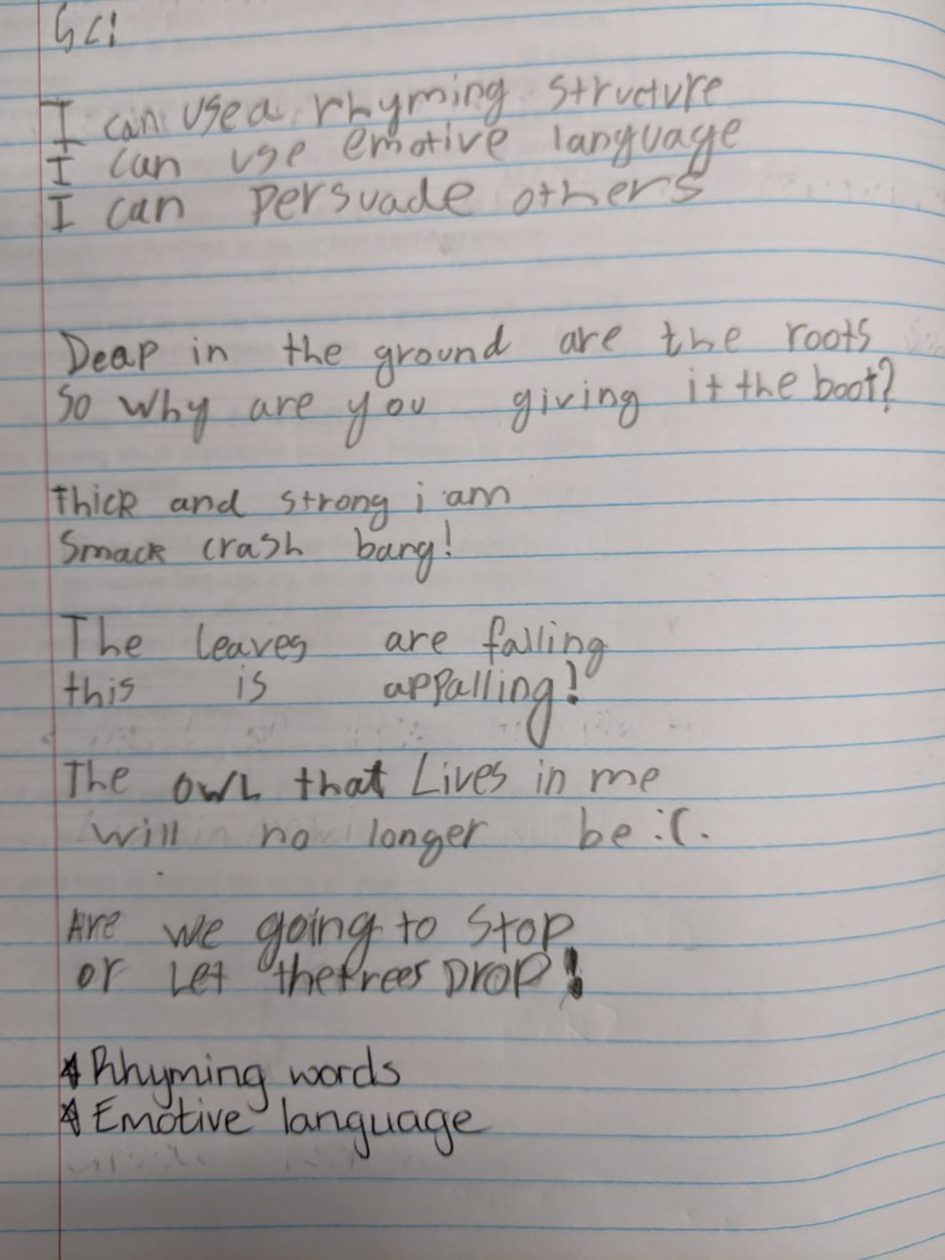 SC:
I can use a rhyming structure
I can use emotive language
I can persuade others
Deap in the ground are the roots
So why are you giving it the boot?
thick and strong i am
Smack crash bang!
The leaves are falling
this is appalling!
The owl that Lives in me
will no longer be :(.
Are we going to Stop
or Let the trees DROP!
* Rhyming words
* Emotive language